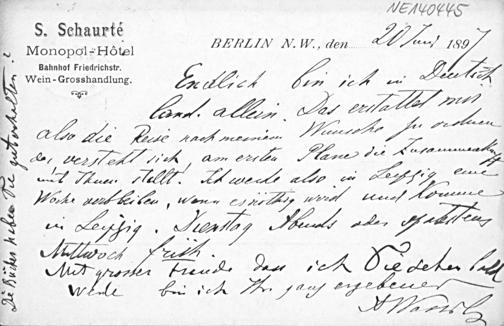 NE140445
S. Schaurté
Monopol-Hôtel
Bahnhof Friedrichstr.
Wein-Grosshandlung.
BERLIN N.W., den 20 Juni 1897
Endlich bin ich in Deutsch
land. allein. Das erstattet mir
also die Reise nach meinem Wunsche zu ordnen
das versteht sich, am ersten Plane die Zusammenkunft
mit Ihnen stellt. Ich werde also in Leipzig eine
Woche verbleiben, wenn es nöthig wird und komme
in Leipzig. Dienstag Abends oder spätestens
Mittwoch früh.
Mit grosser Freude dass ich Sie sehen bald
werde bin ich Ihr ganz ergebener
Die Bücher haben Sie gut erhalten?